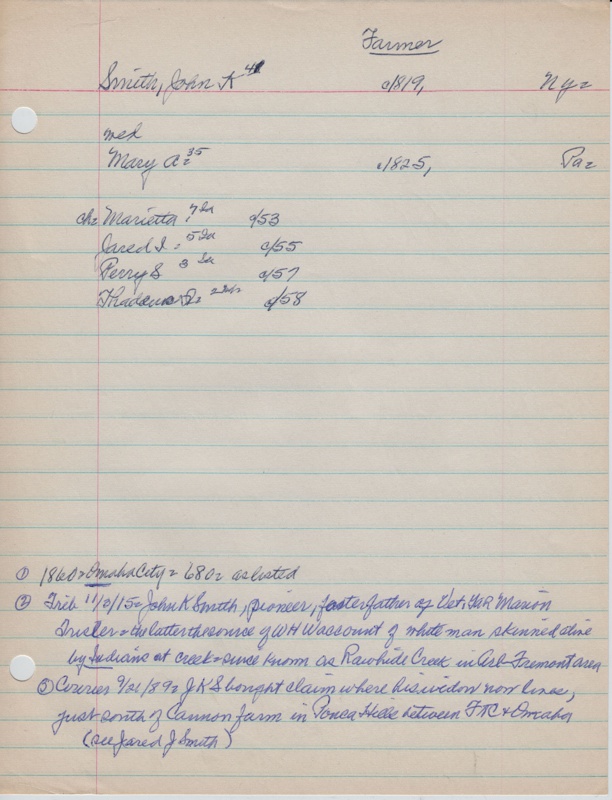 Farmer
Smith, John K 41 c/1819, Ny=
med
Mary A= 35 c1825, Pa=
ch= Marietta, 7 Ia c/53
Jared I. 5 Ia c/55
Perry S 3 Ia c/57
2 c/58
① 1860= Omaha City= 680= as listed
② Trib 11/2/15= John K Smith, pioneer, foster father of Marion
the latter the source of WHW account of white man skinned alive
by Indians at creek= since known as Rawhide Creek in Fremont area
③ Courier 9/21/89= JKS bought claim where his widow now lives,
just south of Cannon farm in Ponca Hills between FtC + Omaha
(see Jared J Smith)